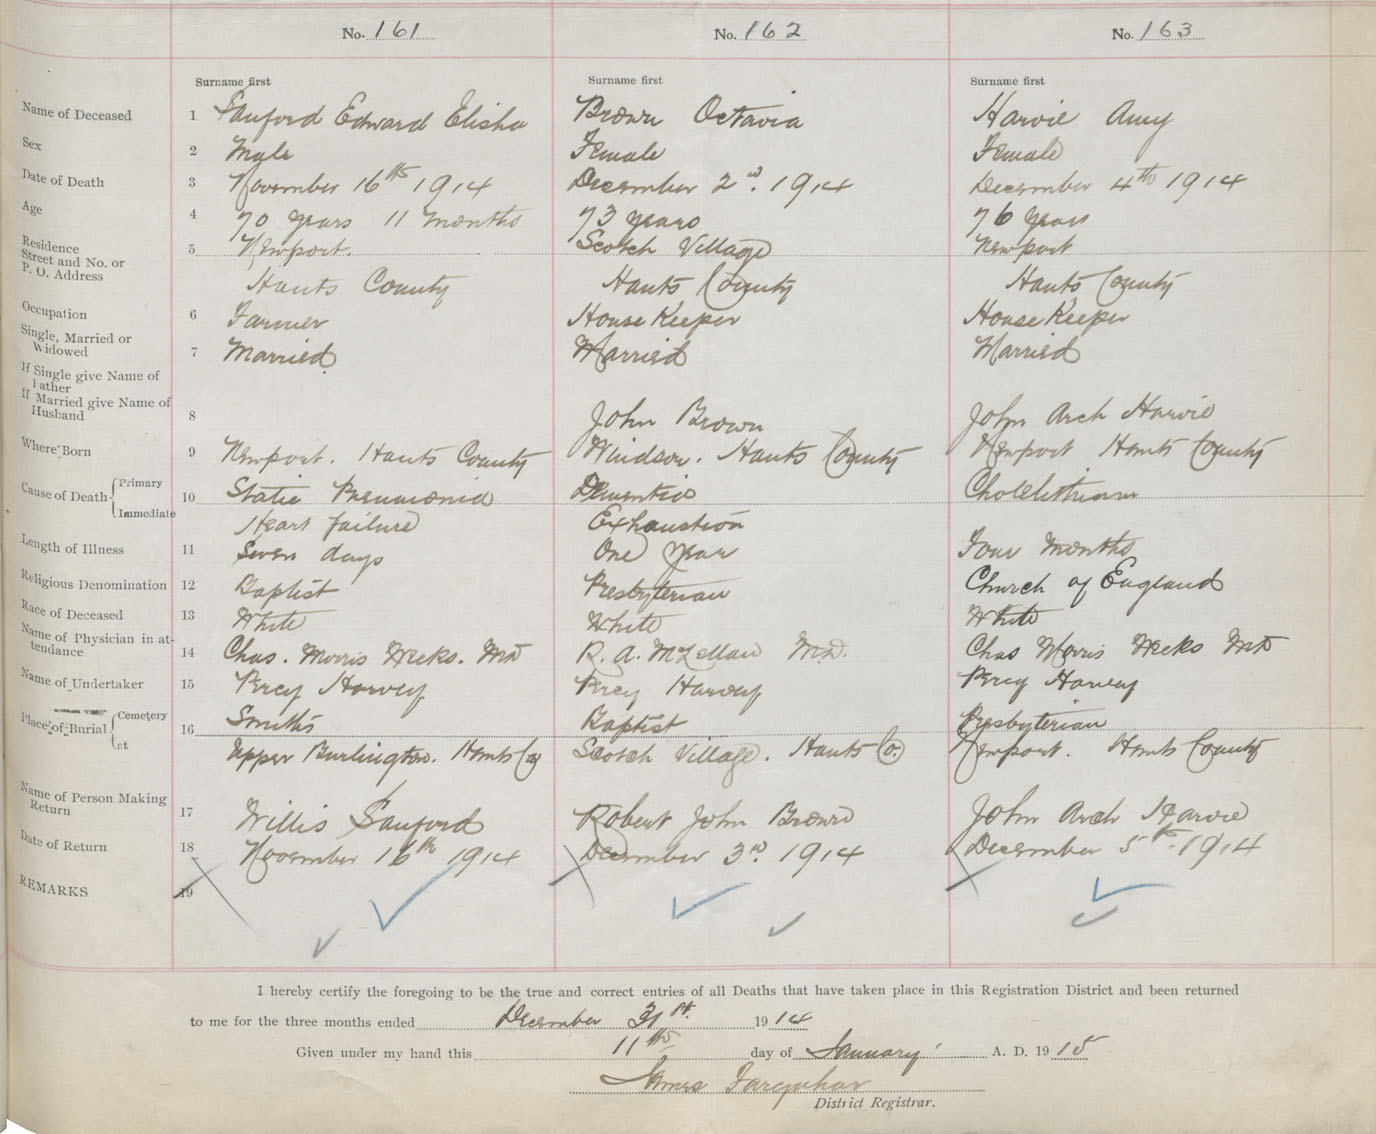 No. 161 No. 162 No. 163
Surname first Surname first Surname first
Name of Deceased 1 Sanford Edward Elisha Brown Octavia Harvie Amy
Sex 2 Male Female Female
Date of Death 3 November 16th 1914 December 2nd. 1914 December 4th 1914
Age 4 70 years 11 months 73 years 76 years
Residence Street and No. or P. O. Address 5 Newport. Scotch Village Newport
Hants County Hants County Hants County
Occupation 6 Farmer House Keeper House Keeper
Single, Married or Widowed 7 Married Married Married
If Single give Name of Father
If Married give Name of Husband 8 John Brown John Arch Harvie
Where Born 9 Newport. Hants County Windsor. Hants County Newport Hants County
Cause of Death Primary 10 Static Pneumonia Dementia
Immediate Heart failure Exhaustion
Length of Illness 11 Seven days One year Four Months
Religious Denomination 12 Baptist Presbyterian Church of England
Race of Deceased 13 White White White
Name of Physician in attendance 14 Chas. Morris Weeks. MD R. A. McLellan M.D. Chas Morris Weeks MD
Name of Undertaker 15 Percy Harvey Percy Harvey Percy Harvey
Place of Burial Cemetery 16 Smiths Baptist Presbyterian
at Upper Burlington. Hants Co Scotch Village. Hants Co. Newport. Hants County
Name of Person Making Return 17 Willis Sanford Robert John Brown John Arch Harvie
Date of Return 18 November 16th 1914 December 3rd. 1914 December 5th. 1914
REMARKS 19
I hereby certify the foregoing to be the true and correct entries of all Deaths that have taken place in this Registration District and been returned
to me for the three months ended December 31st. 1914
Given under my hand this 11th day of January A. D. 1915
James Farquhar
District Registrar.